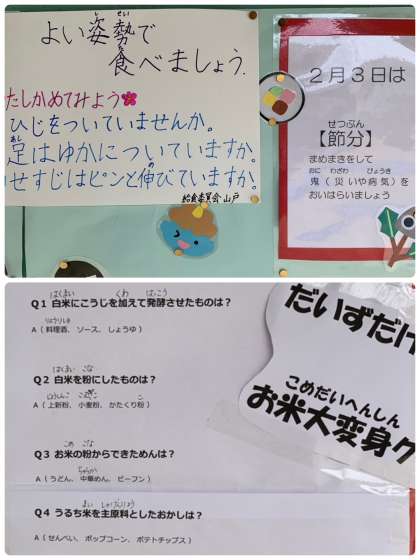 よい姿勢で
食べましょう.
たしかめてみよう
ひじをついていませんか。
足はゆかについていますか。
せすじはピンと伸びていますか。
給食委員会 山戸
2月3日は
せつぶん
【節分】
まめまきをして
おに わざわ びょうき
鬼(災いや病気)を
おいはらいましょう
はくまい くわ はっこう
Q1 白米にこうじを加えて発酵させたものは？
A ( 料理酒、ソース、しょうゆ )
はくまい こな
Q2 白米を粉にしたものは？
A ( 上新粉、小麦粉、かたくり粉 )
こめ こな
Q3 お米の粉からできためんは？
A ( うどん、中華めん、ビーフン )
Q4 うるち米を主原料としたおかしは？
A ( せんべい、ポップコーン、ポテトチップス )
だいずだけ
こめだいへんしん
お米大変身ク